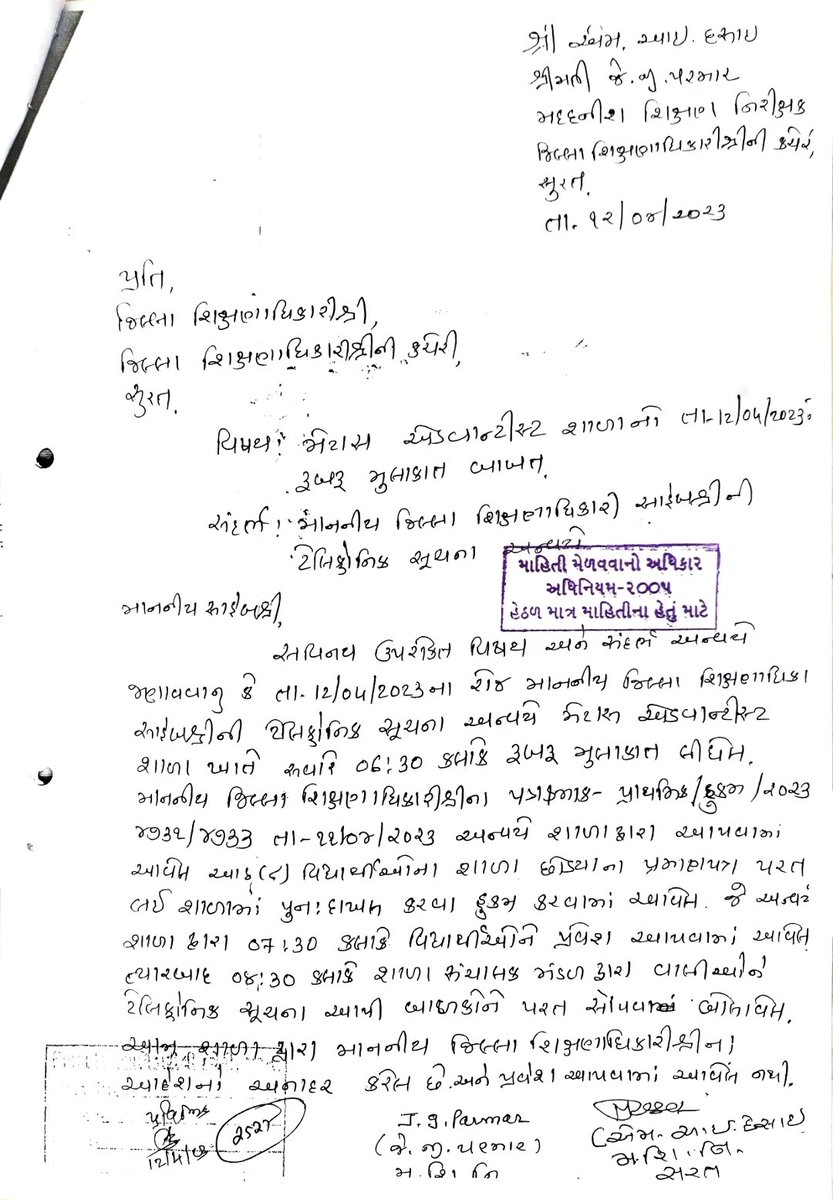 શ્રી એમ. આઇ. દેસાઇ
શ્રીમતી જે. જી. પરમાર
મદદનીશ શિક્ષણ નિરીક્ષક
જિલ્લા શિક્ષણાધિકારીશ્રીની કચેરી,
સુરત.
તા. ૧૨/૦૪/૨૦૨૩
પ્રતિ,
જિલ્લા શિક્ષણાધિકારીશ્રી,
જિલ્લા શિક્ષણાધિકારીશ્રીની કચેરી,
સુરત.
વિષય: મેટાસ એડવાન્ટીસ્ટ શાળાની તા-12/04/2023
રૂબરૂ મુલાકાત બાબત.
સંદર્ભ: માનનીય જિલ્લા શિક્ષણાધિકારી સાહેબશ્રીની
ટેલિફોનિક સૂચના અન્વયે
માહિતી મેળવવાનો અધિકાર
અધિનિયમ-૨૦૦૫
હેઠળ માત્ર માહિતીના હેતું માટે
માનનીય સાહેબશ્રી,
સવિનય ઉપરોક્ત વિષય અને સંદર્ભ અન્વયે
જણાવવાનુ કે તા-12/04/2023ના રોજ માનનીય જિલ્લા શિક્ષણાધિકા
સાહેબશ્રીની ટેલિફોનિક સૂચના અન્વયે મેટાસ એડવાન્ટીસ્ટ
શાળા ખાતે સવારે 06:30 કલાકે રૂબરૂ મુલાકાત લીધેલ.
માનનીય જિલ્લા શિક્ષણાધિકારીશ્રીના પત્રક્રમાંક- પ્રાથમિક/હુકમ/૨૦૨૩
૪૭૩૧/૪૭૩૩ તા-૧૧/૦૪/૨૦૨૩ અન્વયે શાળા દ્વારા આપવામાં
આવેલ આઠ(૮) વિદ્યાર્થીઓના શાળા છોડ્યાના પ્રમાણપત્ર પરત
લઈ શાળામાં પુન:દાખલ કરવા હુકમ કરવામાં આવેલ. જે અન્વયે
શાળા દ્વારા 07:30 કલાકે વિદ્યાર્થીઓને પ્રવેશ આપવામાં આવેલ
ત્યારબાદ 08:30 કલાકે શાળા સંચાલક મંડળ દ્વારા વાલીઓને
ટેલિફોનિક સૂચના આપી બાળકોને પરત સોંપવા બોલાવેલ.
આમ શાળા દ્વારા માનનીય જિલ્લા શિક્ષણાધિકારીશ્રીના
આદેશનો અનાદર કરેલ છે.અને પ્રવેશ આપવામાં આવેલ નથી.
J.g.Parmar
(જે.જી.પરમાર)
મ.શિ.નિ
(એમ.આઇ.દેસાઇ
મ.શિ.નિ.
સુરત